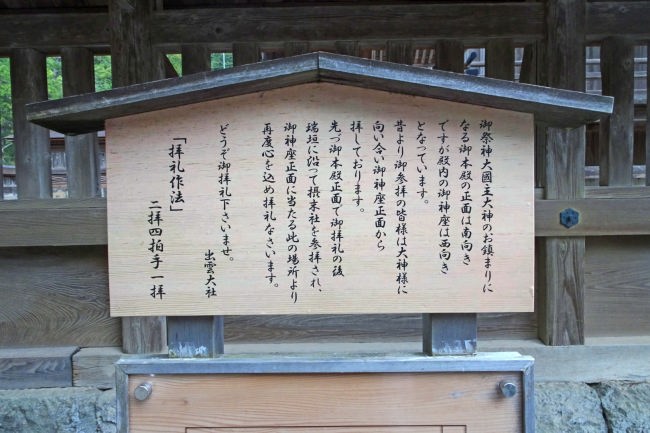 御祭神大國主大神のお鎮まりに
なる御本殿の正面は南向き
ですが殿内の御神座は西向き
となっています。
昔より御参拝の皆様は大神様に
向い合い御神座正面から
拝しております。
先づ御本殿正面で御拝礼の後
瑞垣に沿つて摂末社を参拝され、
御神座正面に当たる此の場所より
再度心を込め拝礼なさいます。
どうぞ御拝礼下さいませ。
出雲大社
「拝礼作法」
二拝四拍手一拝